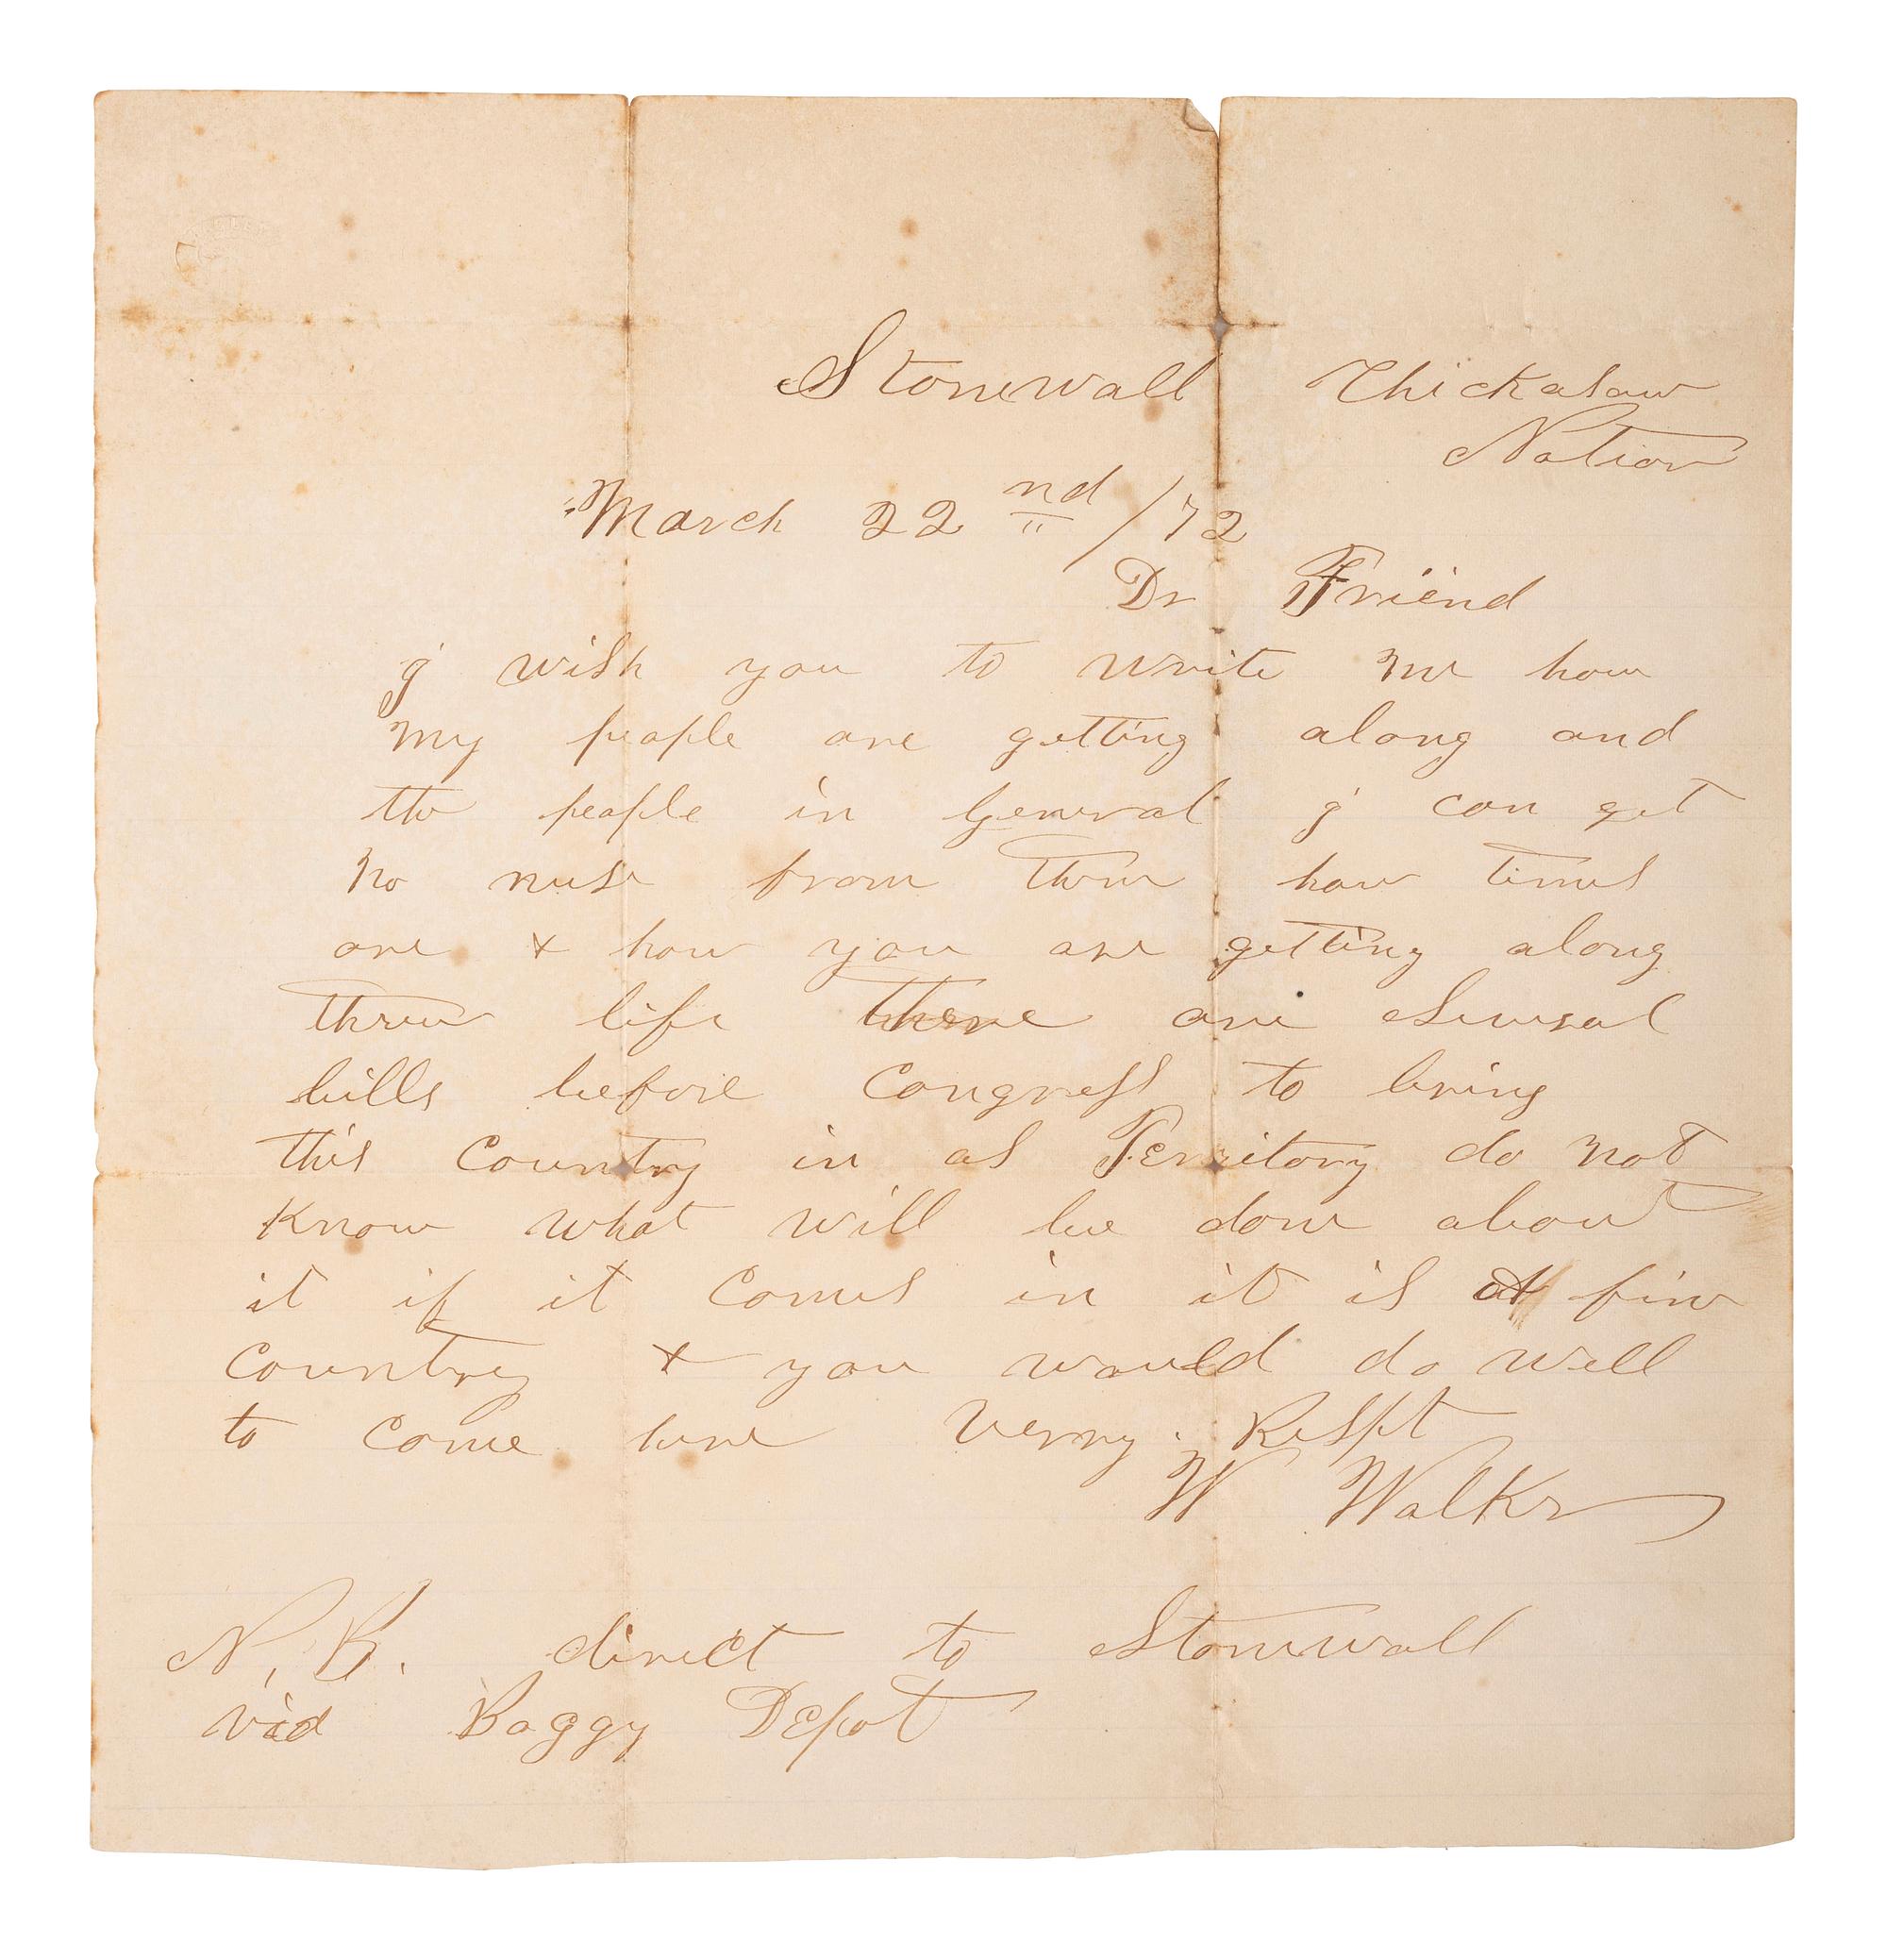 Stonewall Chickasaw
Nation
March 22nd /72
Dr Friend
I wish you to write me how
my people are getting along and
the people in General I can get
no nuse from them how times
are & how you are getting along
threw life there are Several
bills before Congress to bring
this Country in as Territory do not
Know what will be done about
it if it comes in it is a fine
country & you would do well
to come here Verry Respt
W Walkr
N. B. direct to Stonewall
via Boggy Depot